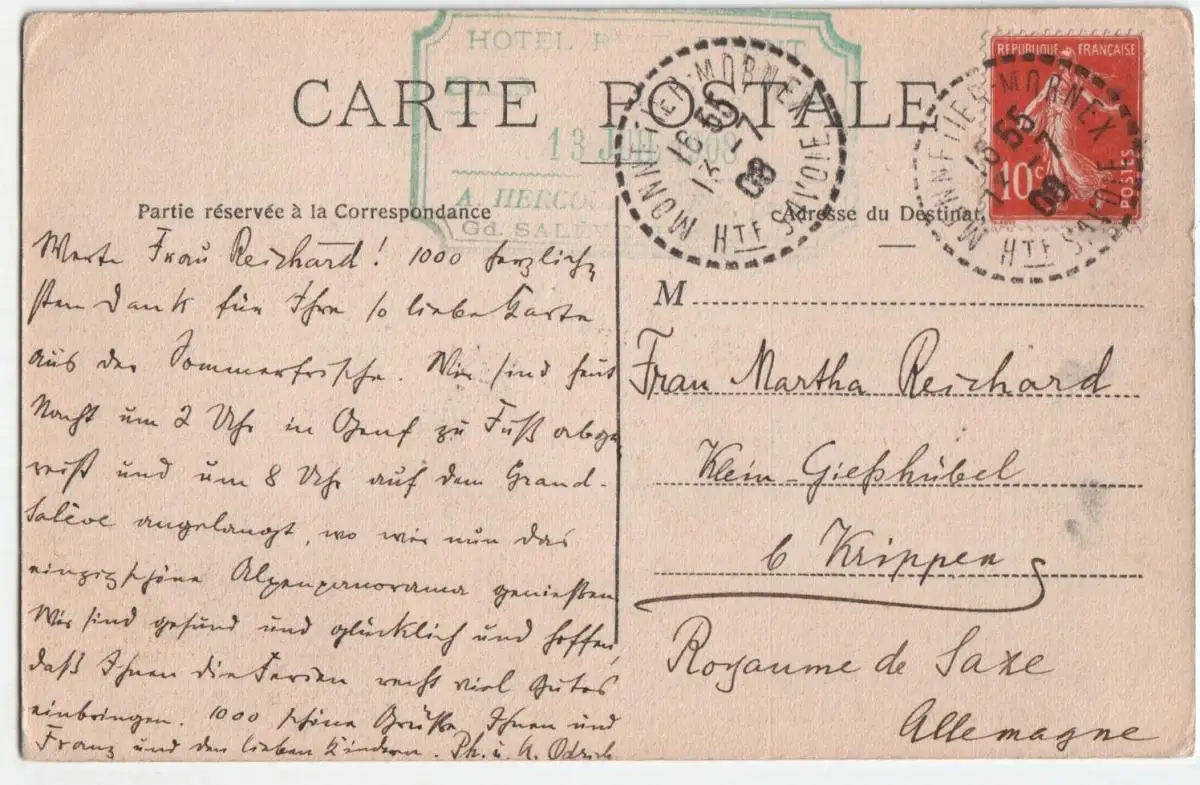 HOTEL
CARTE POSTALE
13 1908
A. HERCO
Gd. SALÈV
MONNETIER-MORNEX
16 55
13 - 7
08
HTE SAVOIE
RÉPUBLIQUE FRANÇAISE
10 c
POSTES
MONNETIER-MORNEX
16 55
7
08
HTE SAVOIE
Partie réservée à la Correspondance
Adresse du Destinat
Werte Frau Reichard! 1000 herzlich-
sten Dank für Ihre so liebe Karte
aus der Sommerfrische. Wir sind heut
Nacht um 2 Uhr in Genf zu Fuß abge-
reist und um 8 Uhr auf dem Grand-
Salève angelangt, wo wir nun das
einzigschöne Alpenpanorama genießen
Wir sind gesund und glücklich und hoffen,
daß Ihnen die Ferien recht viel Gutes
einbringen. 1000 schöne Grüße Ihnen und
Franz und den lieben Kindern. Ph. u. A.
M
Frau Martha Reichard
Klein-Gießhübel
b Krippen
Royaume de Saxe
Allemagne